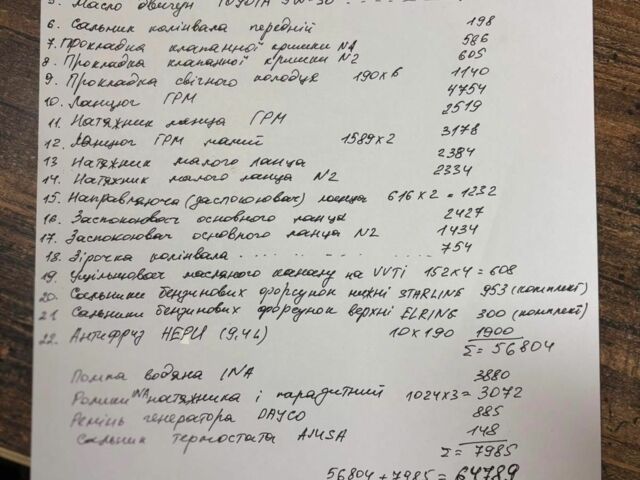 5. Масло двигун TOYOTA 5W-30
6. Сальник колінвала передній 198
7. Прокладка клапанної кришки N1 586
8. Прокладка клапанної кришки N2 605
9. Прокладка свічного колодця 190х6 1140
10. Ланцюг ГРМ 4754
11. Натяжник ланцa ГРМ 2519
12. Ланцюг ГРМ малий 1589х2 3178
13 Натяжник малого ланца 2384
14. Натяжник малого ланца N2 2334
15. Направляюча (заспокоювач) ланца 616х2 = 1232
16. Заспокоювач основного ланца 2427
17. Заспокоювач основного ланца N2 1434
18. Зірочка колінвала 754
19. Ущільнювач масляного каналу на VVTi 152х4 = 608
20. Сальники бензинових форсунок нижні STARLINE 953 (комплект)
21 Сальники бензинових форсунок верхні ELRING 300 (комплект)
22. Антифриз HEPU (9,4L) 10х190 1900
Σ = 56804
Помпа водяна INA 3880
Ролики INA натяжника і парадитний 1024х3 = 3072
Ремінь генератора DAYCO 885
Сальник термостата AJUSA 148
Σ = 7985
56804 + 7985 = 64789